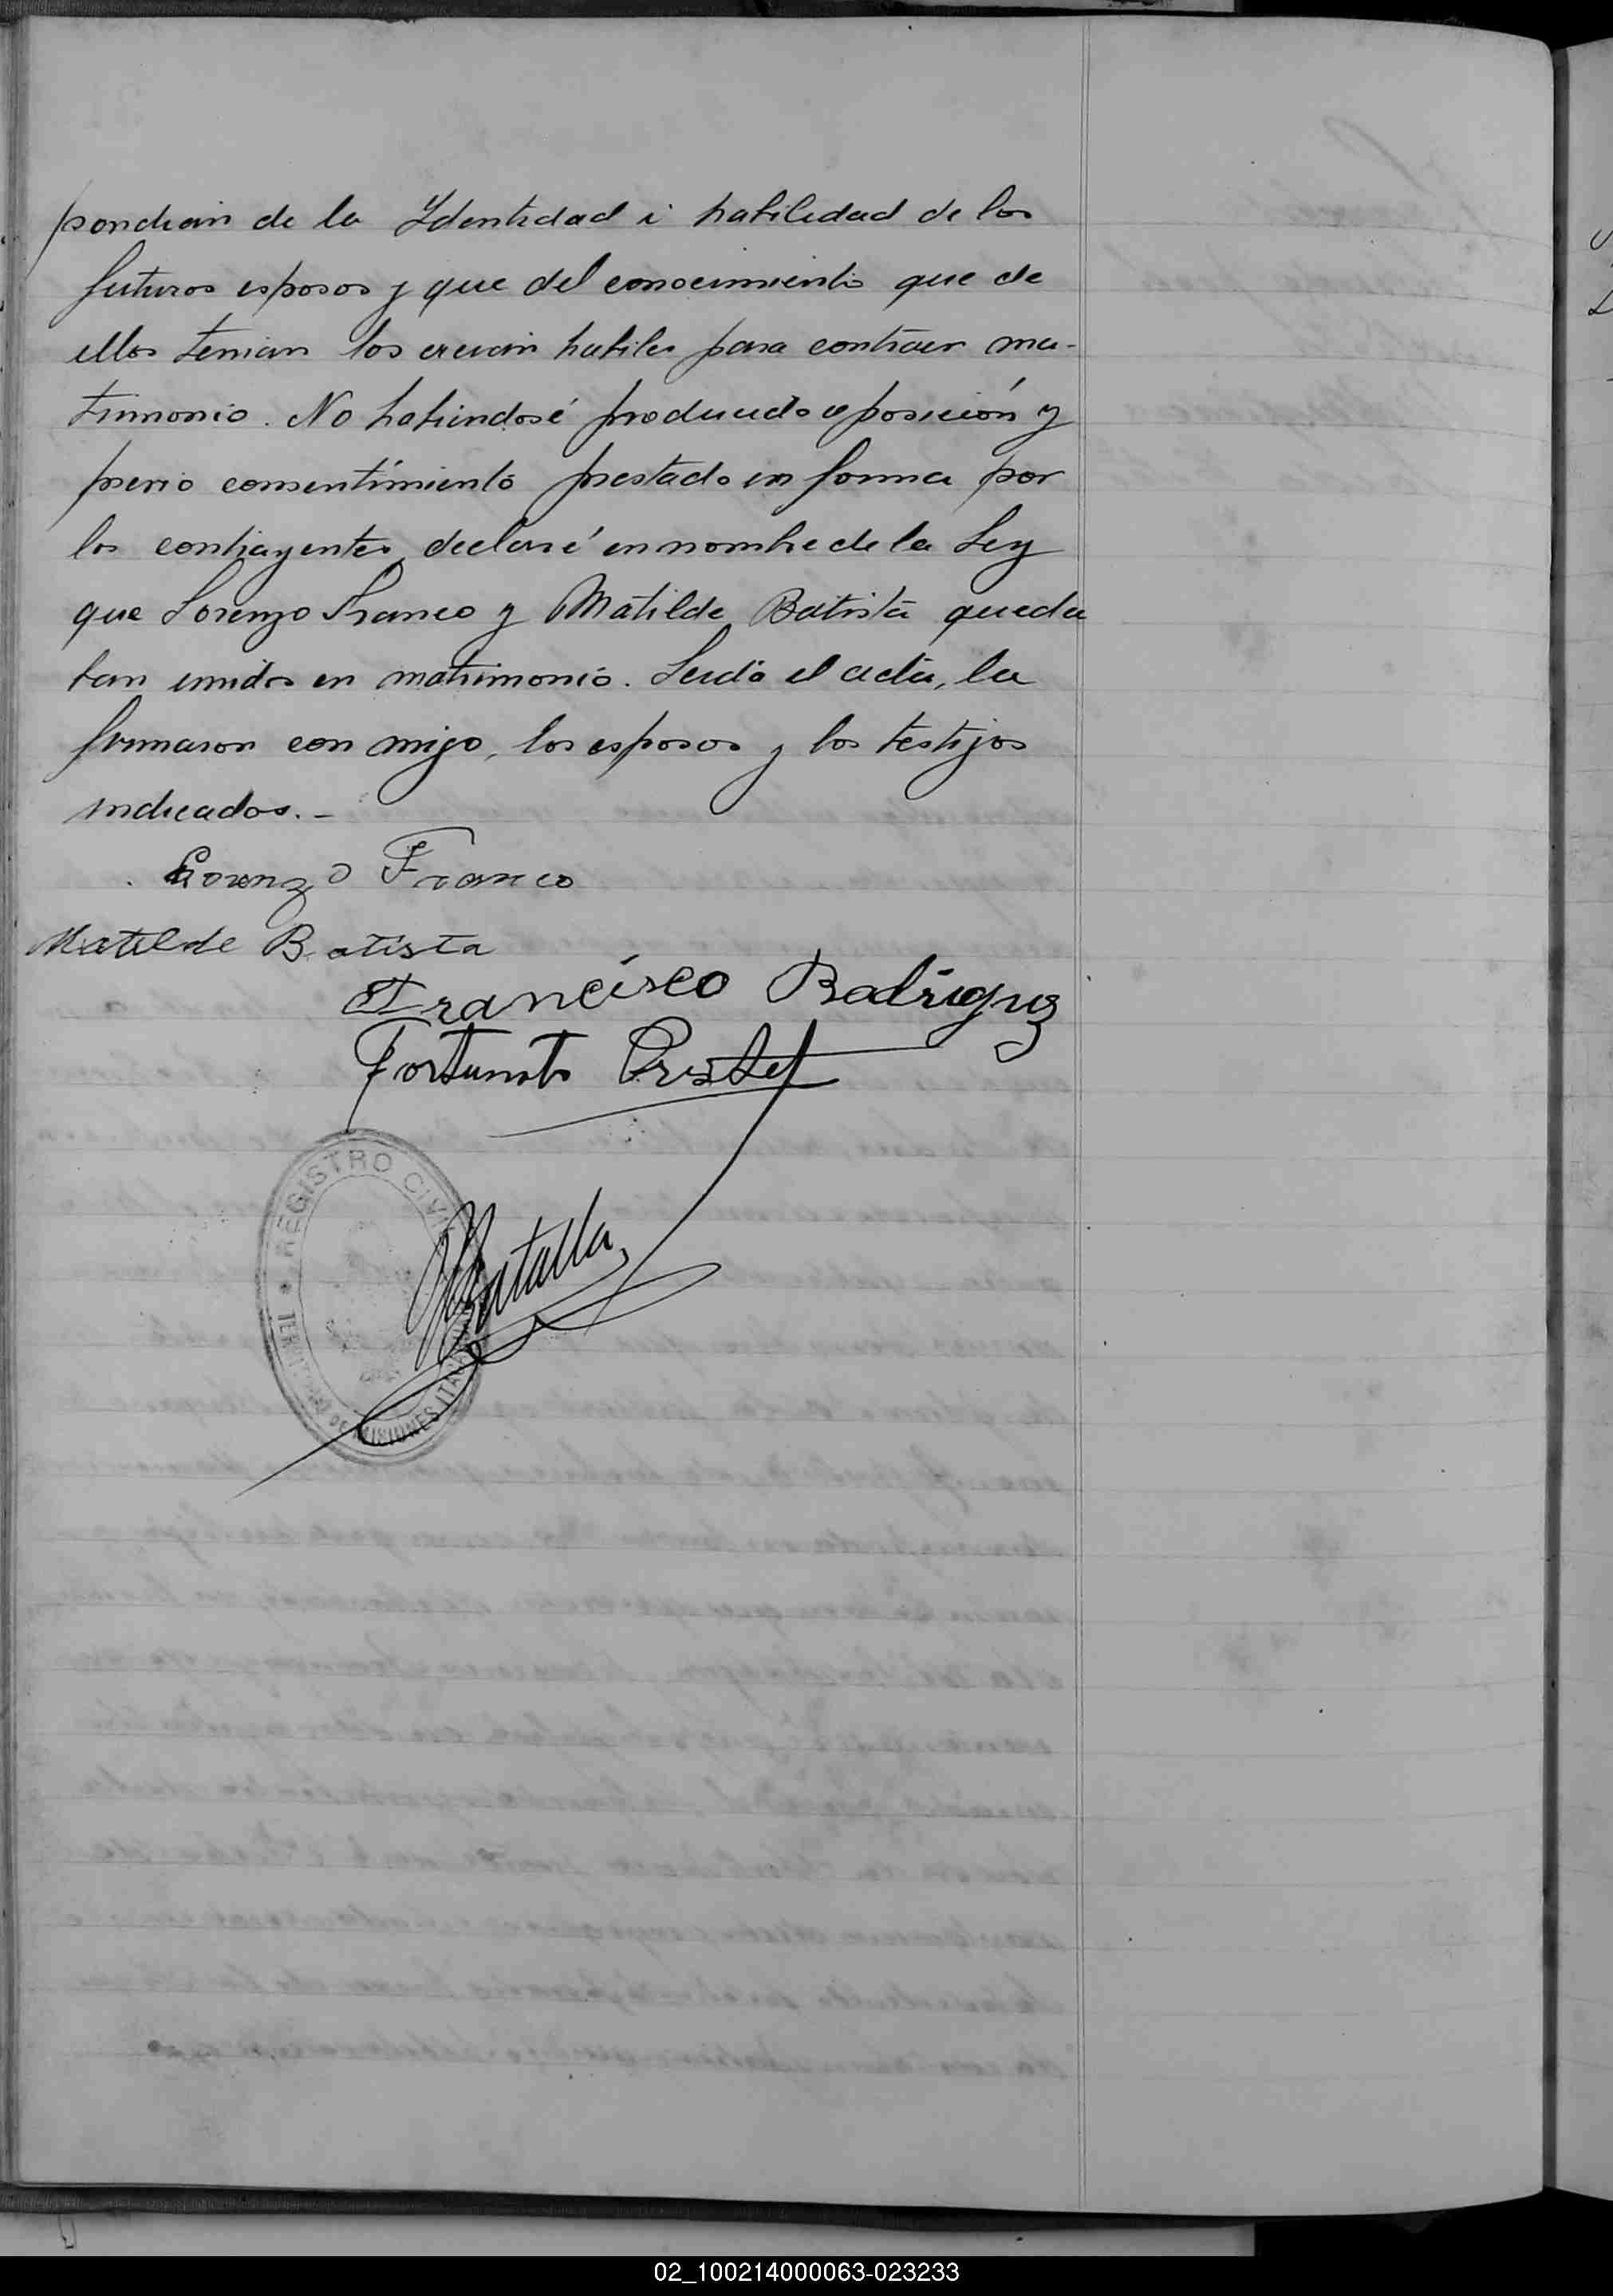 pondian de la Identidad i habilidad de los
futuros esposos y que del conocimiento que de
ellos tenian los creian habiles para contraer ma-
trimonio. No habiendosé producido oposición y
previo consentimiento prestado en forma por
los contrayentes, declaré en nombre de la Ley
que Lorenzo Franco y Matilde Batista queda
ban unidos en matrimonio. Leida el acta, la
firmaron con migo, los esposos y los testijos
indicados. -
Lorenzo Franco
Matilde Batista
Francisco Rodriguz
Fortunato
REGISTRO CIVIL
TERRITORIO DE MISIONES
Batalla
02_100214000063-023233